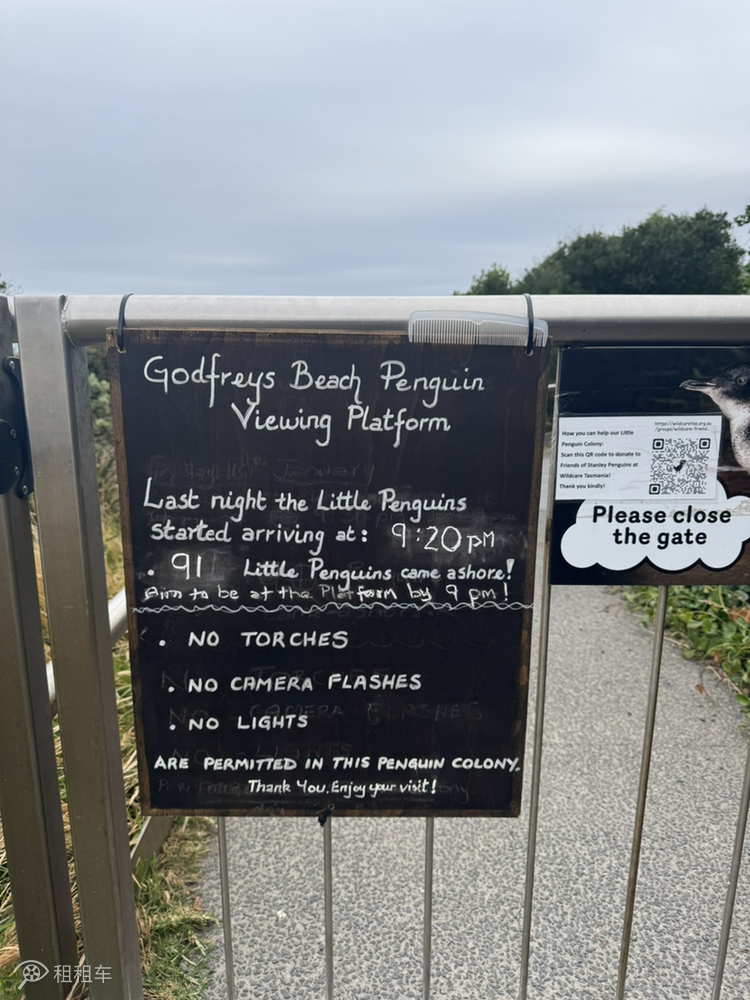 Godfreys Beach Penguin
Viewing Platform
January
Last night the Little Penguins
started arriving at: 9:20 pm
• 91 Little Penguins came ashore!
Aim to be at the Platform by 9 pm!
• NO TORCHES
• NO CAMERA FLASHES
• NO LIGHTS
ARE PERMITTED IN THIS PENGUIN COLONY.
Thank You. Enjoy your visit!
https://wildcaretas.org.au
/groups/wildcare-friend...
How you can help our Little
Penguin Colony:
Scan this QR code to donate to
Friends of Stanley Penguins at
Wildcare Tasmania!
Thank you kindly!
Please close
the gate
租租车